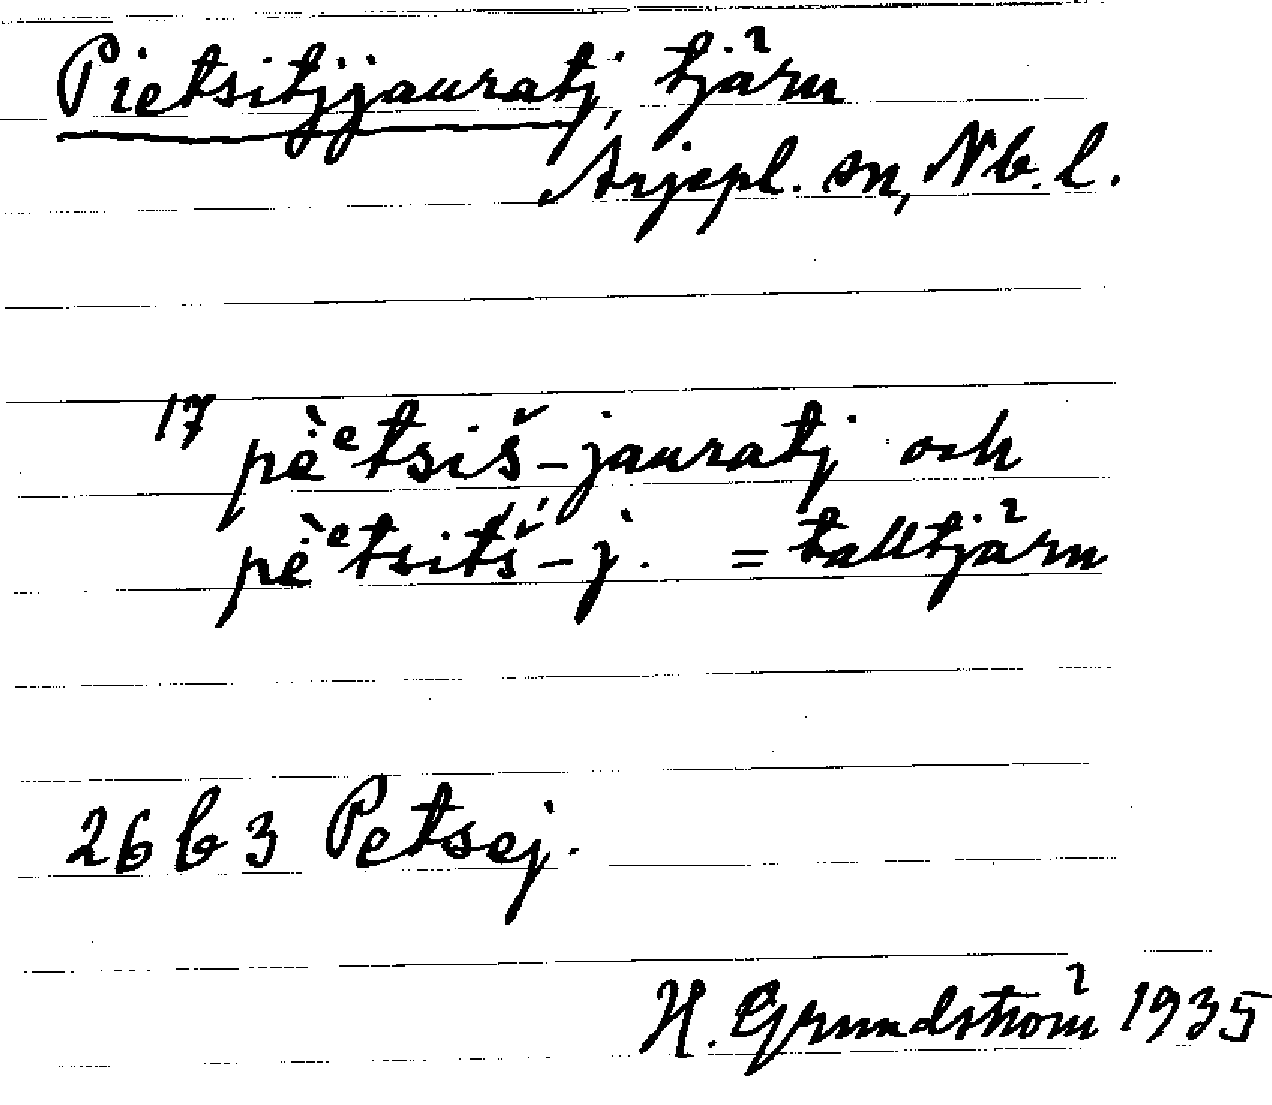 Pietsitjjauratj, tjärn
Arjepl. sn, Nb. l.
17 pė̀ᵉtsiš-jauratj och
pė̀ᵉtsitš́-j. = talltjärn
26 b 3 Petsej.
H. Grundström 1935